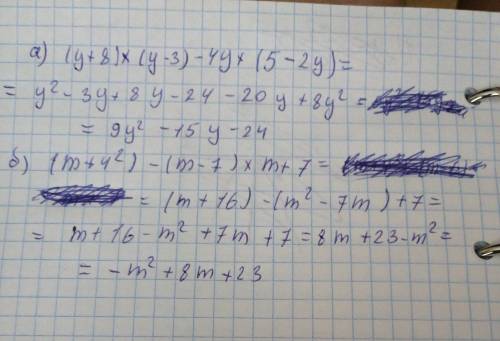 а) (y+8)×(y-3)-4y×(5-2y)=
= y²-3y+8y-24-20y+8y²=
= 9y²-15y-24
б) (m+4²)-(m-7)×m+7=
= (m+16)-(m²-7m)+7=
= m+16-m²+7m+7=8m+23-m²=
= -m²+8m+23